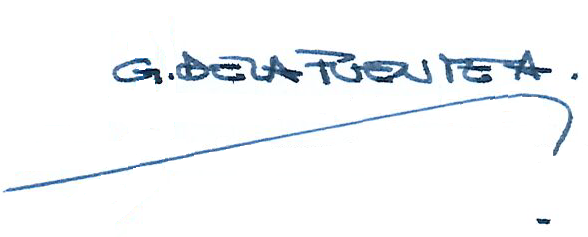 G. DE LA PUENTE A.